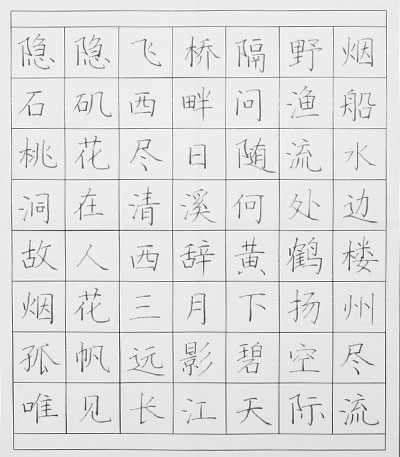 隐隐飞桥隔野烟
石矶西畔问渔船
桃花尽日随流水
洞在清溪何处边
故人西辞黄鹤楼
烟花三月下扬州
孤帆远影碧空尽
唯见长江天际流